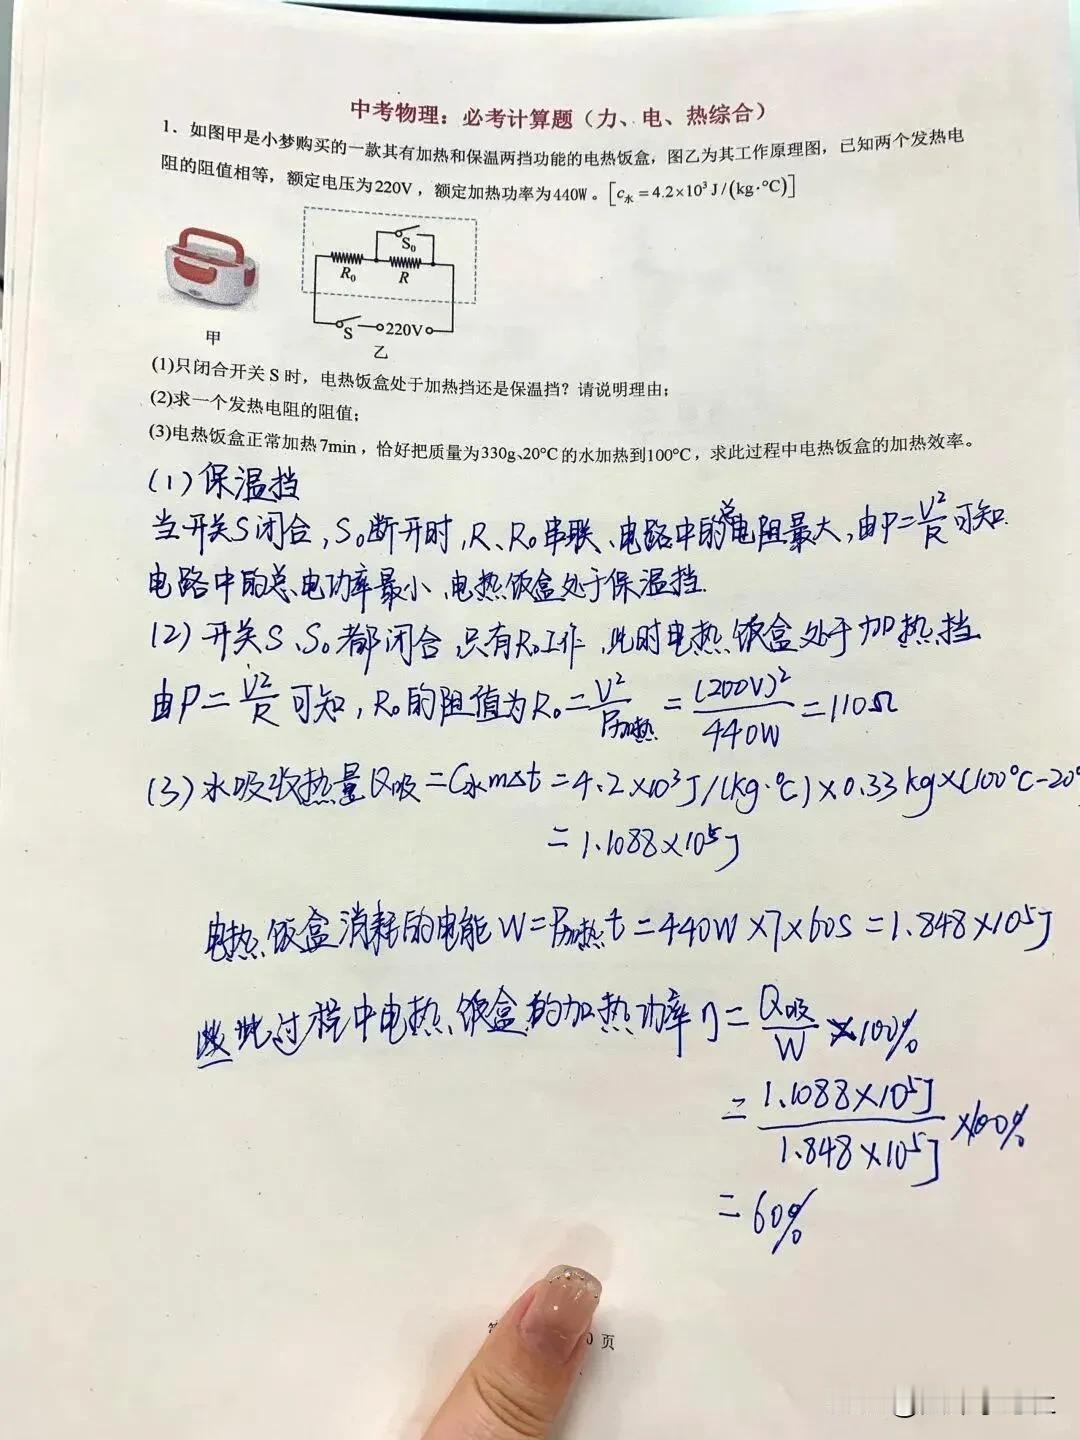 中考物理：必考计算题（力、电、热综合）
1．如图甲是小梦购买的一款其有加热和保温两挡功能的电热饭盒，图乙为其工作原理图，已知两个发热电
阻的阻值相等，额定电压为220V，额定加热功率为440W。[c水=4.2×10³J/(kg·°C)]
S₀
R₀ R
S 220V
甲
乙
(1)只闭合开关S时，电热饭盒处于加热挡还是保温挡？请说明理由；
(2)求一个发热电阻的阻值；
(3)电热饭盒正常加热7min，恰好把质量为330g、20°C的水加热到100°C，求此过程中电热饭盒的加热效率。
(1)保温挡
当开关S闭合，S₀断开时，R、R₀串联、电路中的总电阻最大，由P=U²/R可知.
电路中的总电功率最小、电热饭盒处于保温挡.
(2)开关S、S₀都闭合，只有R₀工作，此时电热饭盒处于加热挡
由P=U²/R可知，R₀的阻值为R₀=U²/P加热=(200V)²/440W=110Ω
(3)水吸收热量Q吸=C水m△t=4.2×10³J/(kg·℃)×0.33kg×(100°C-20°
=1.1088×10⁵J
电热饭盒消耗的电能W=P加热t=440W×7×60s=1.848×10⁵J
此过程中电热饭盒的加热功率η=Q吸/W×100%
=1.1088×10⁵J/1.848×10⁵J×100%
=60%
页